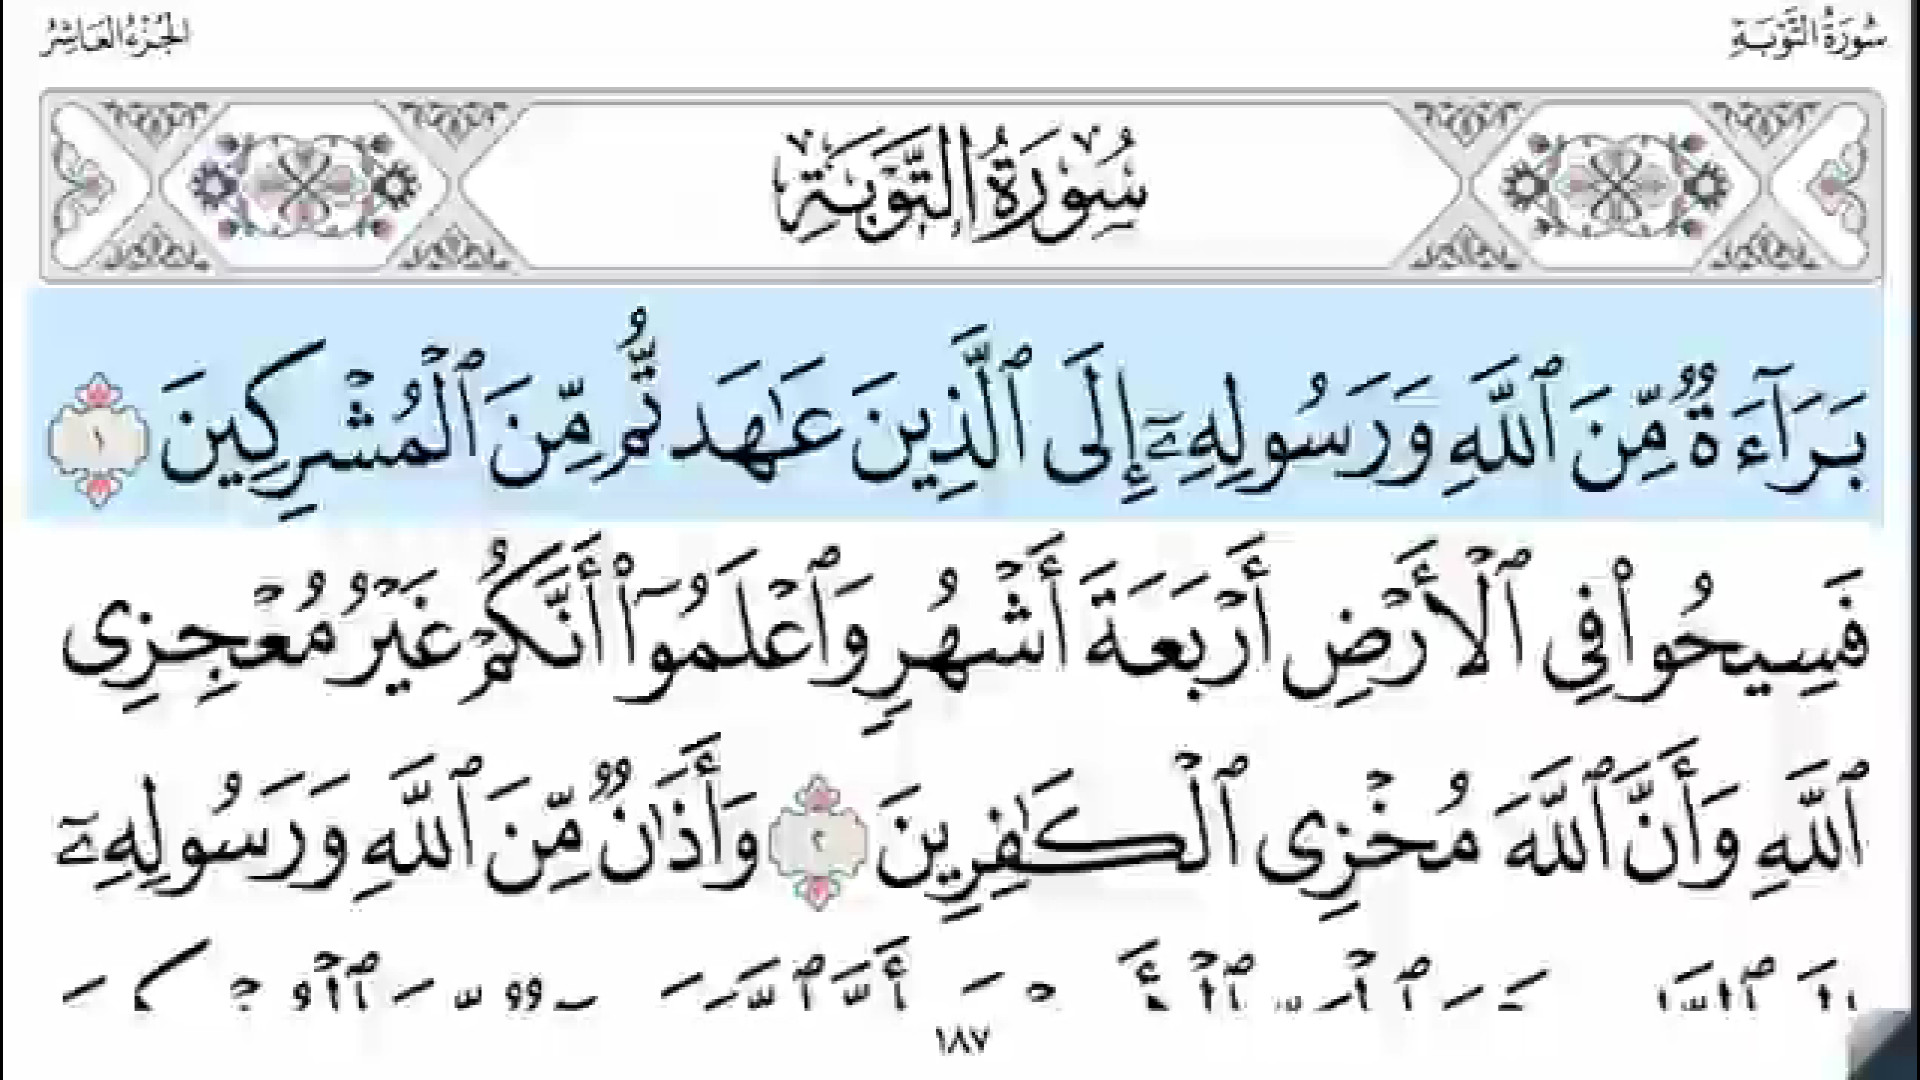 سُورَةُ التَّوْبَةِ
الجُزْءُ العَاشِرُ
سُورَةُ التَّوْبَةِ
بَرَآءَةٌ مِّنَ ٱللَّهِ وَرَسُولِهِۦٓ إِلَى ٱلَّذِينَ عَٰهَدتُّم مِّنَ ٱلْمُشْرِكِينَ ١
فَسِيحُوا۟ فِى ٱلْأَرْضِ أَرْبَعَةَ أَشْهُرٍ وَٱعْلَمُوٓا۟ أَنَّكُمْ غَيْرُ مُعْجِزِى
ٱللَّهِ وَأَنَّ ٱللَّهَ مُخْزِى ٱلْكَٰفِرِينَ ٢ وَأَذَٰنٌ مِّنَ ٱللَّهِ وَرَسُولِهِۦٓ
١٨٧